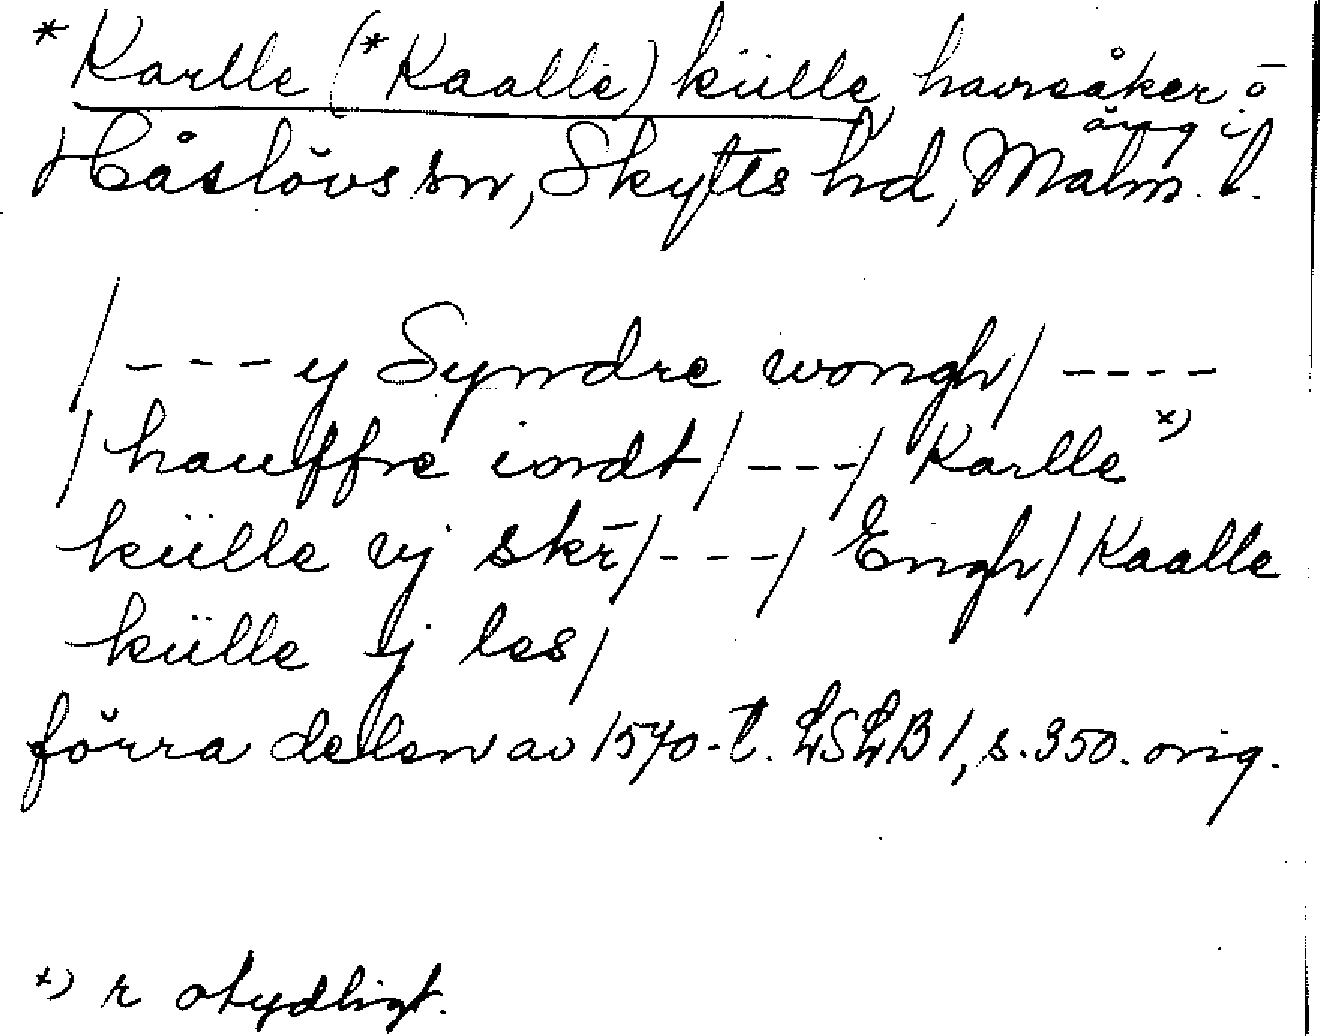 *Karlle (*Kaalle) külle, havreåker o
äng i
Håslövs sn, Skytts hd, Malm. l.
/---- y Syndre wongh/ ----
/hauffre iordt/---/ Karlle x)
külle vj skr̄/---/ Engh/ Kaalle
külle ij les/
förra delen av 1570-t. LSLB 1, s. 350. orig.
x) r otydligt.